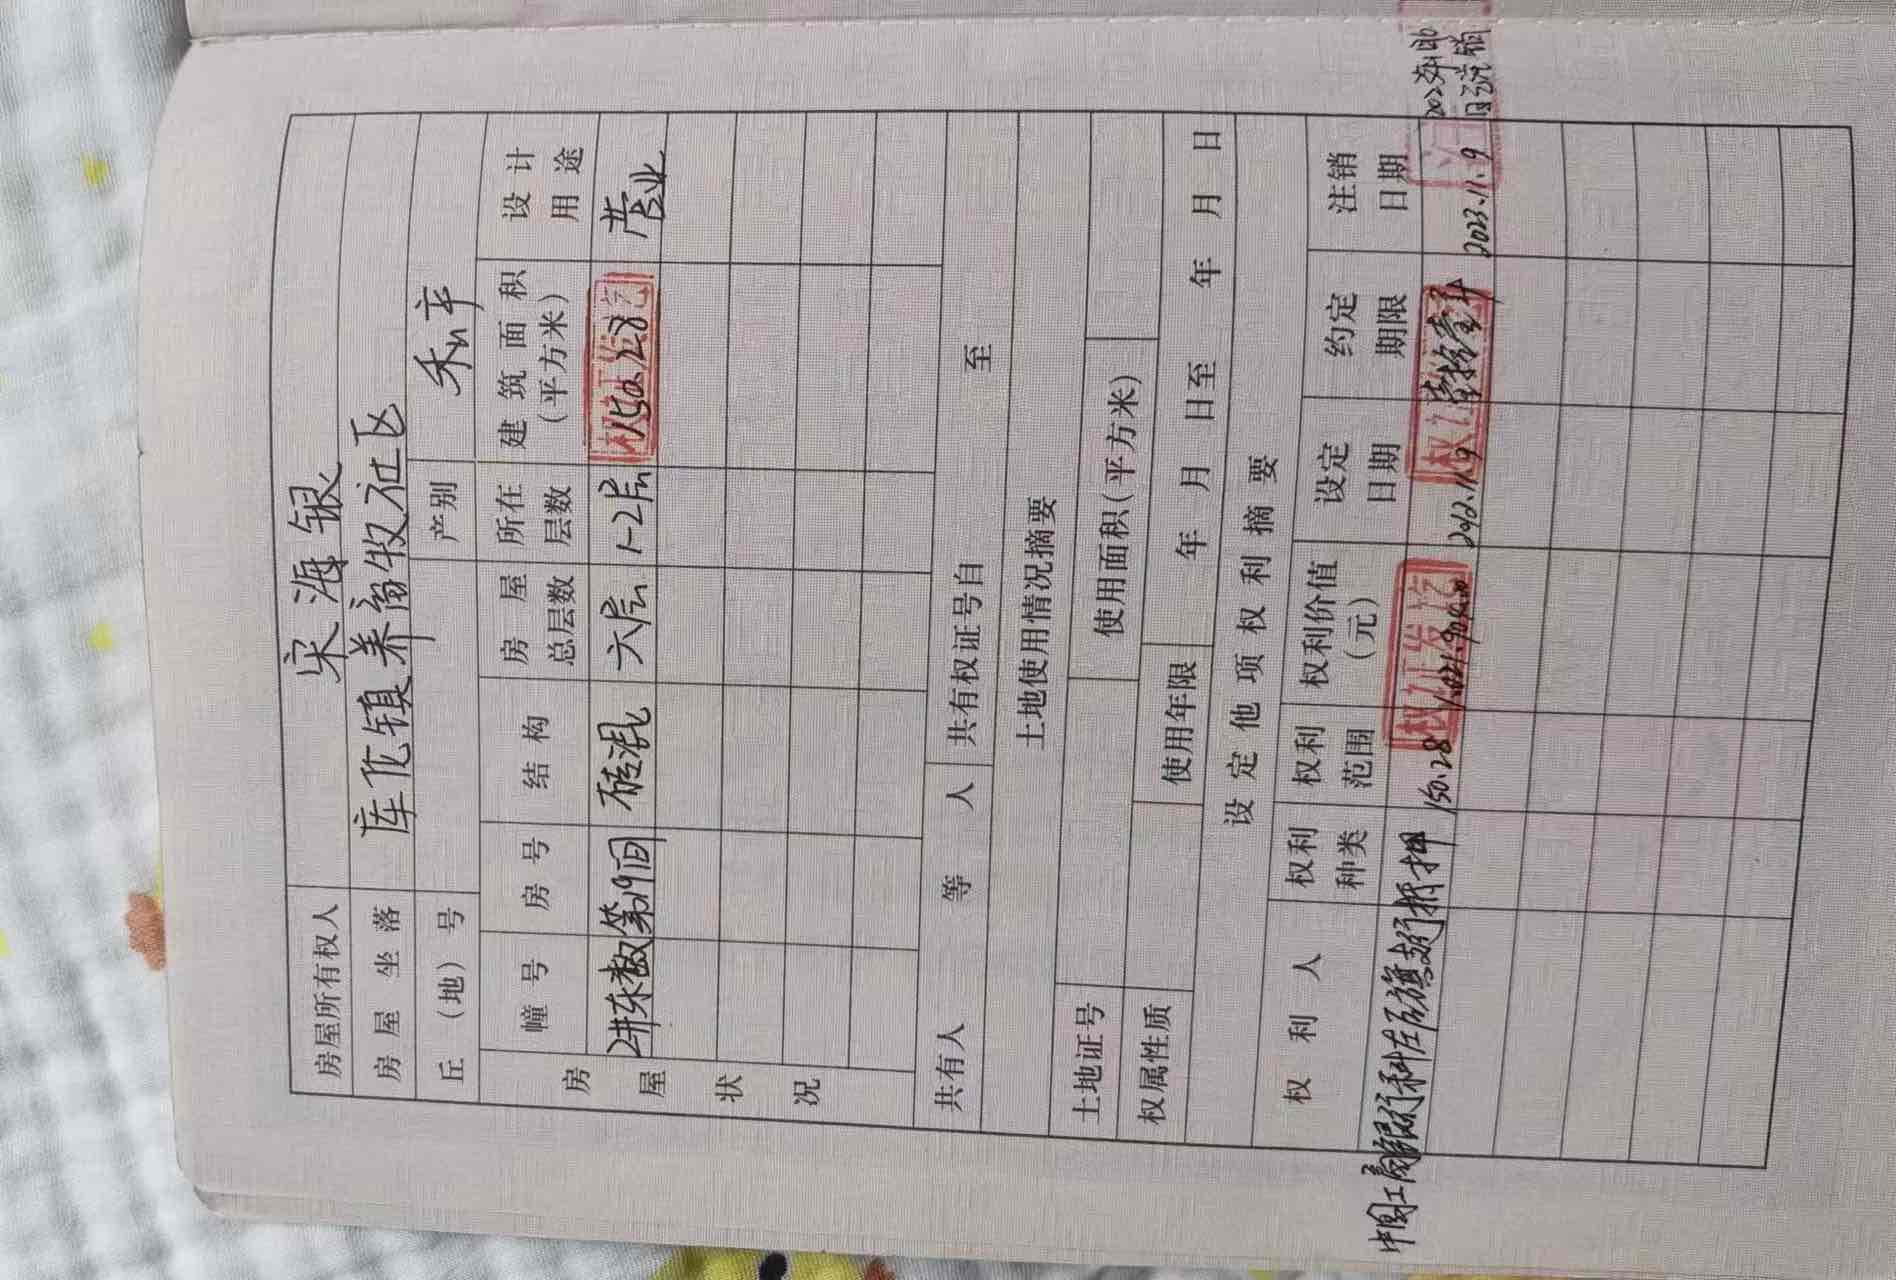 房屋所有权人 宋海银
房屋坐落 库伦镇养畜牧社区
丘（地）号 产别 私产
房屋状况
幢号 房号 结构 房屋总层数 所在层数 建筑面积（平方米） 设计用途
2井东数第19间 砖混 六层 1-2层 150.28 营业
共有人 等 人 共有权证号自 至
土地使用情况摘要
土地证号 使用面积（平方米）
权属性质 使用年限 年 月 日至 年 月 日
设定他项权利摘要
权利人 权利种类 权利范围 权利价值（元） 设定日期 约定期限 注销日期
中国工商银行科左后旗支行 抵押 150.28 2012.11.9 壹拾壹年 2023.11.9